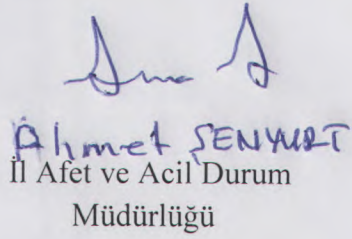 Ahmet ŞENYURT
İl Afet ve Acil Durum
Müdürlüğü